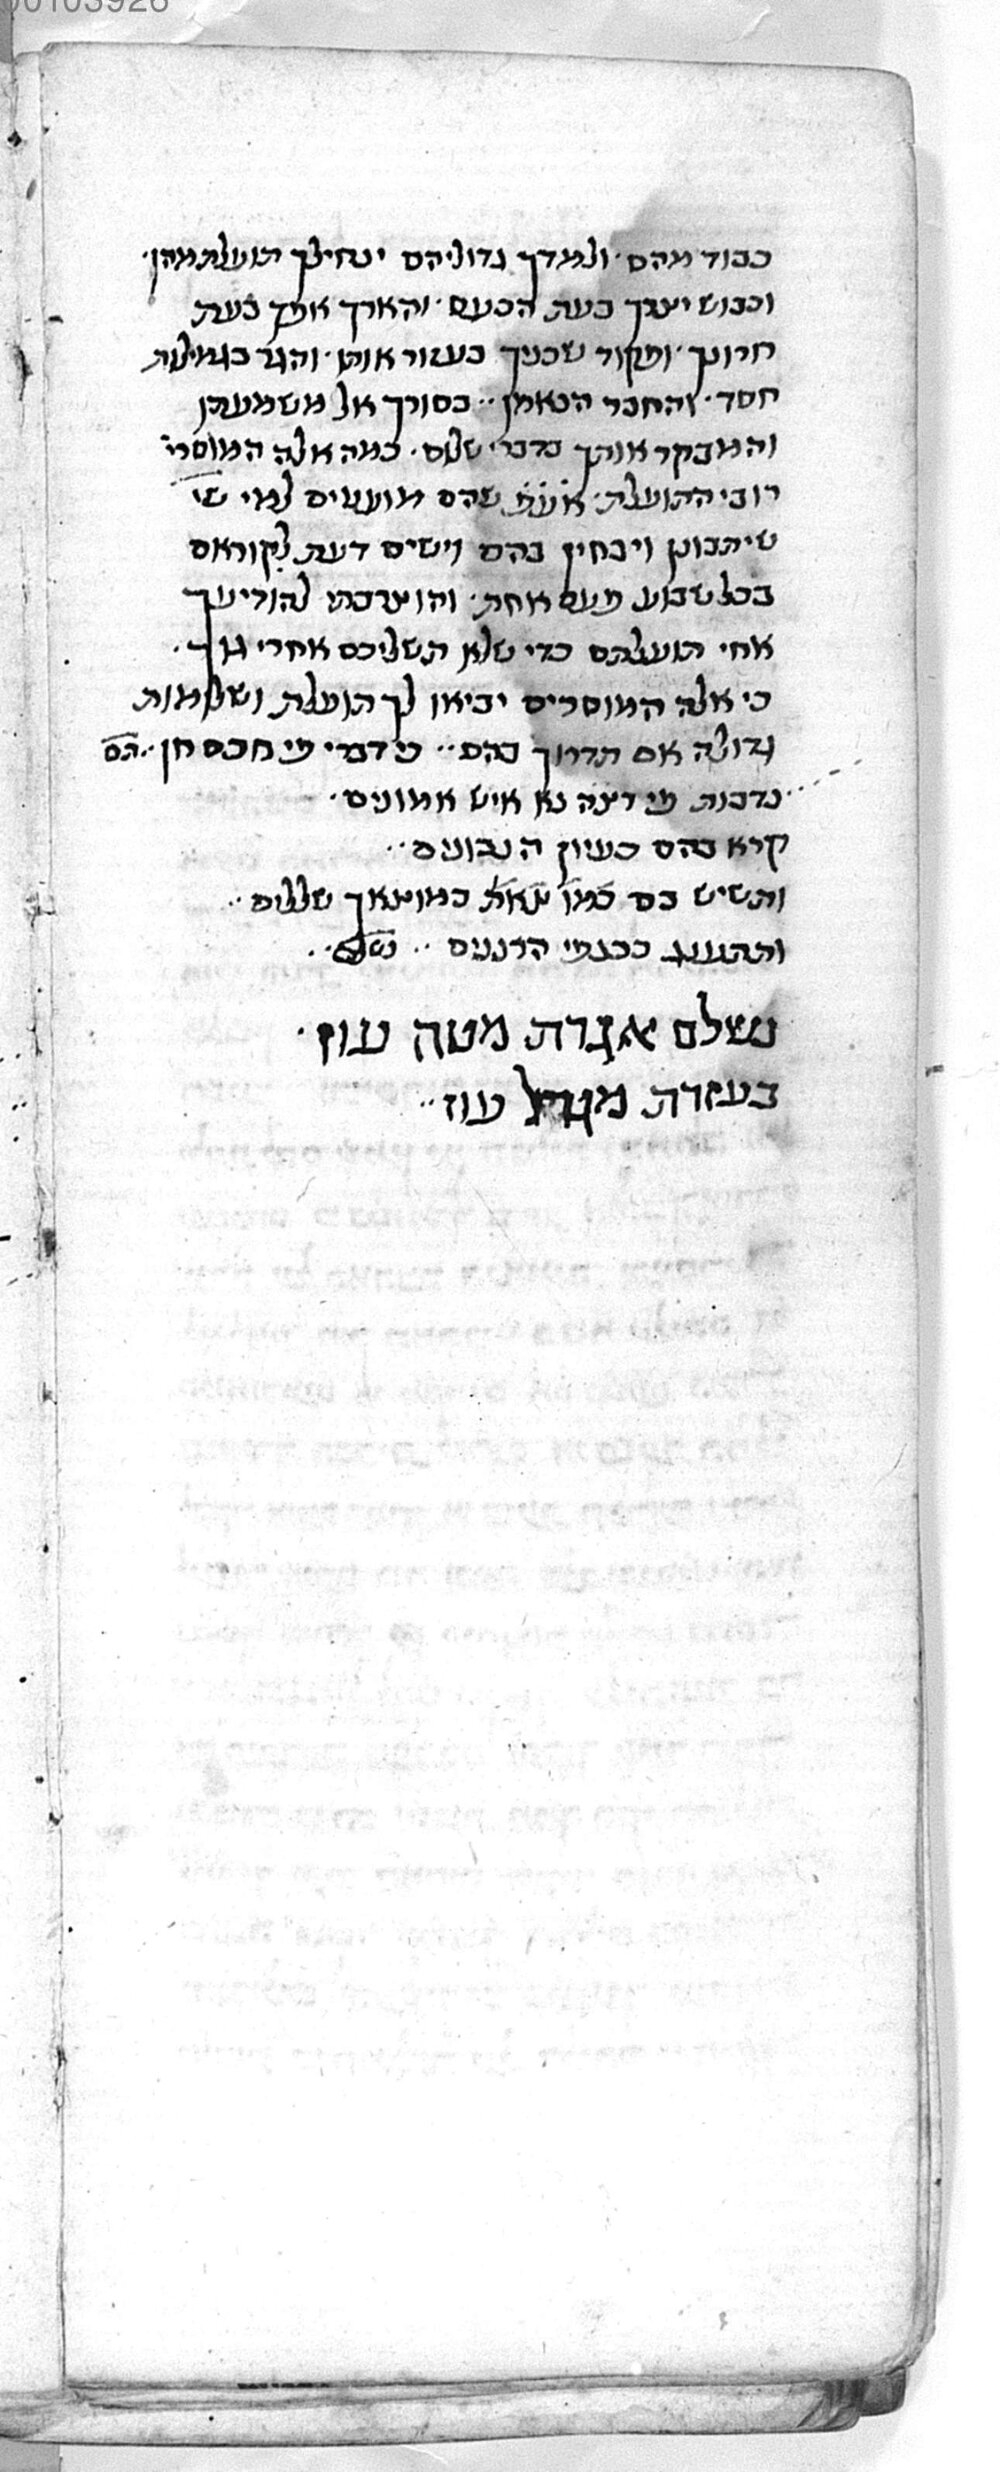 00103926
כבוד מהם · ולמדך גדוליהם ינחילך תועלת מהן ·
וכבוש יצרך בעת הכעס · והארך אפך בעת
חרונך · ופקוד שכניך בעזור אותו · והגר בגמילת
חסד · והחבר הנאמן ·· בסורך אל משמעתן
והמבקר אותך בדברי שלום · כמה אלה המוסרי'
רובי התועלת · שהם מועטים למי שי
שיתבונן ויבחין בהם וישים דעת לקוראם
בכל שבוע פעם אחת · והוצרכתי להודיעך
אחי תועלתם כדי שלא תשליכם אחרי גוך ·
כי אלה המוסרים יביאו לך תועלת ושלמות
גדולה אם תדרוך בהם ·· כי דברי פי חכם חן ·· הם
נדבות פי רצה נא איש אמונים ·
קרא בהם כעיון הנבונים ··
ותשיש בם כמוצאך שללים ··
והתענג ככנפי הרננים ·· נשלם ··
נשלם אגרת מטה עוז ·
בעזרת מגדל עוז ··